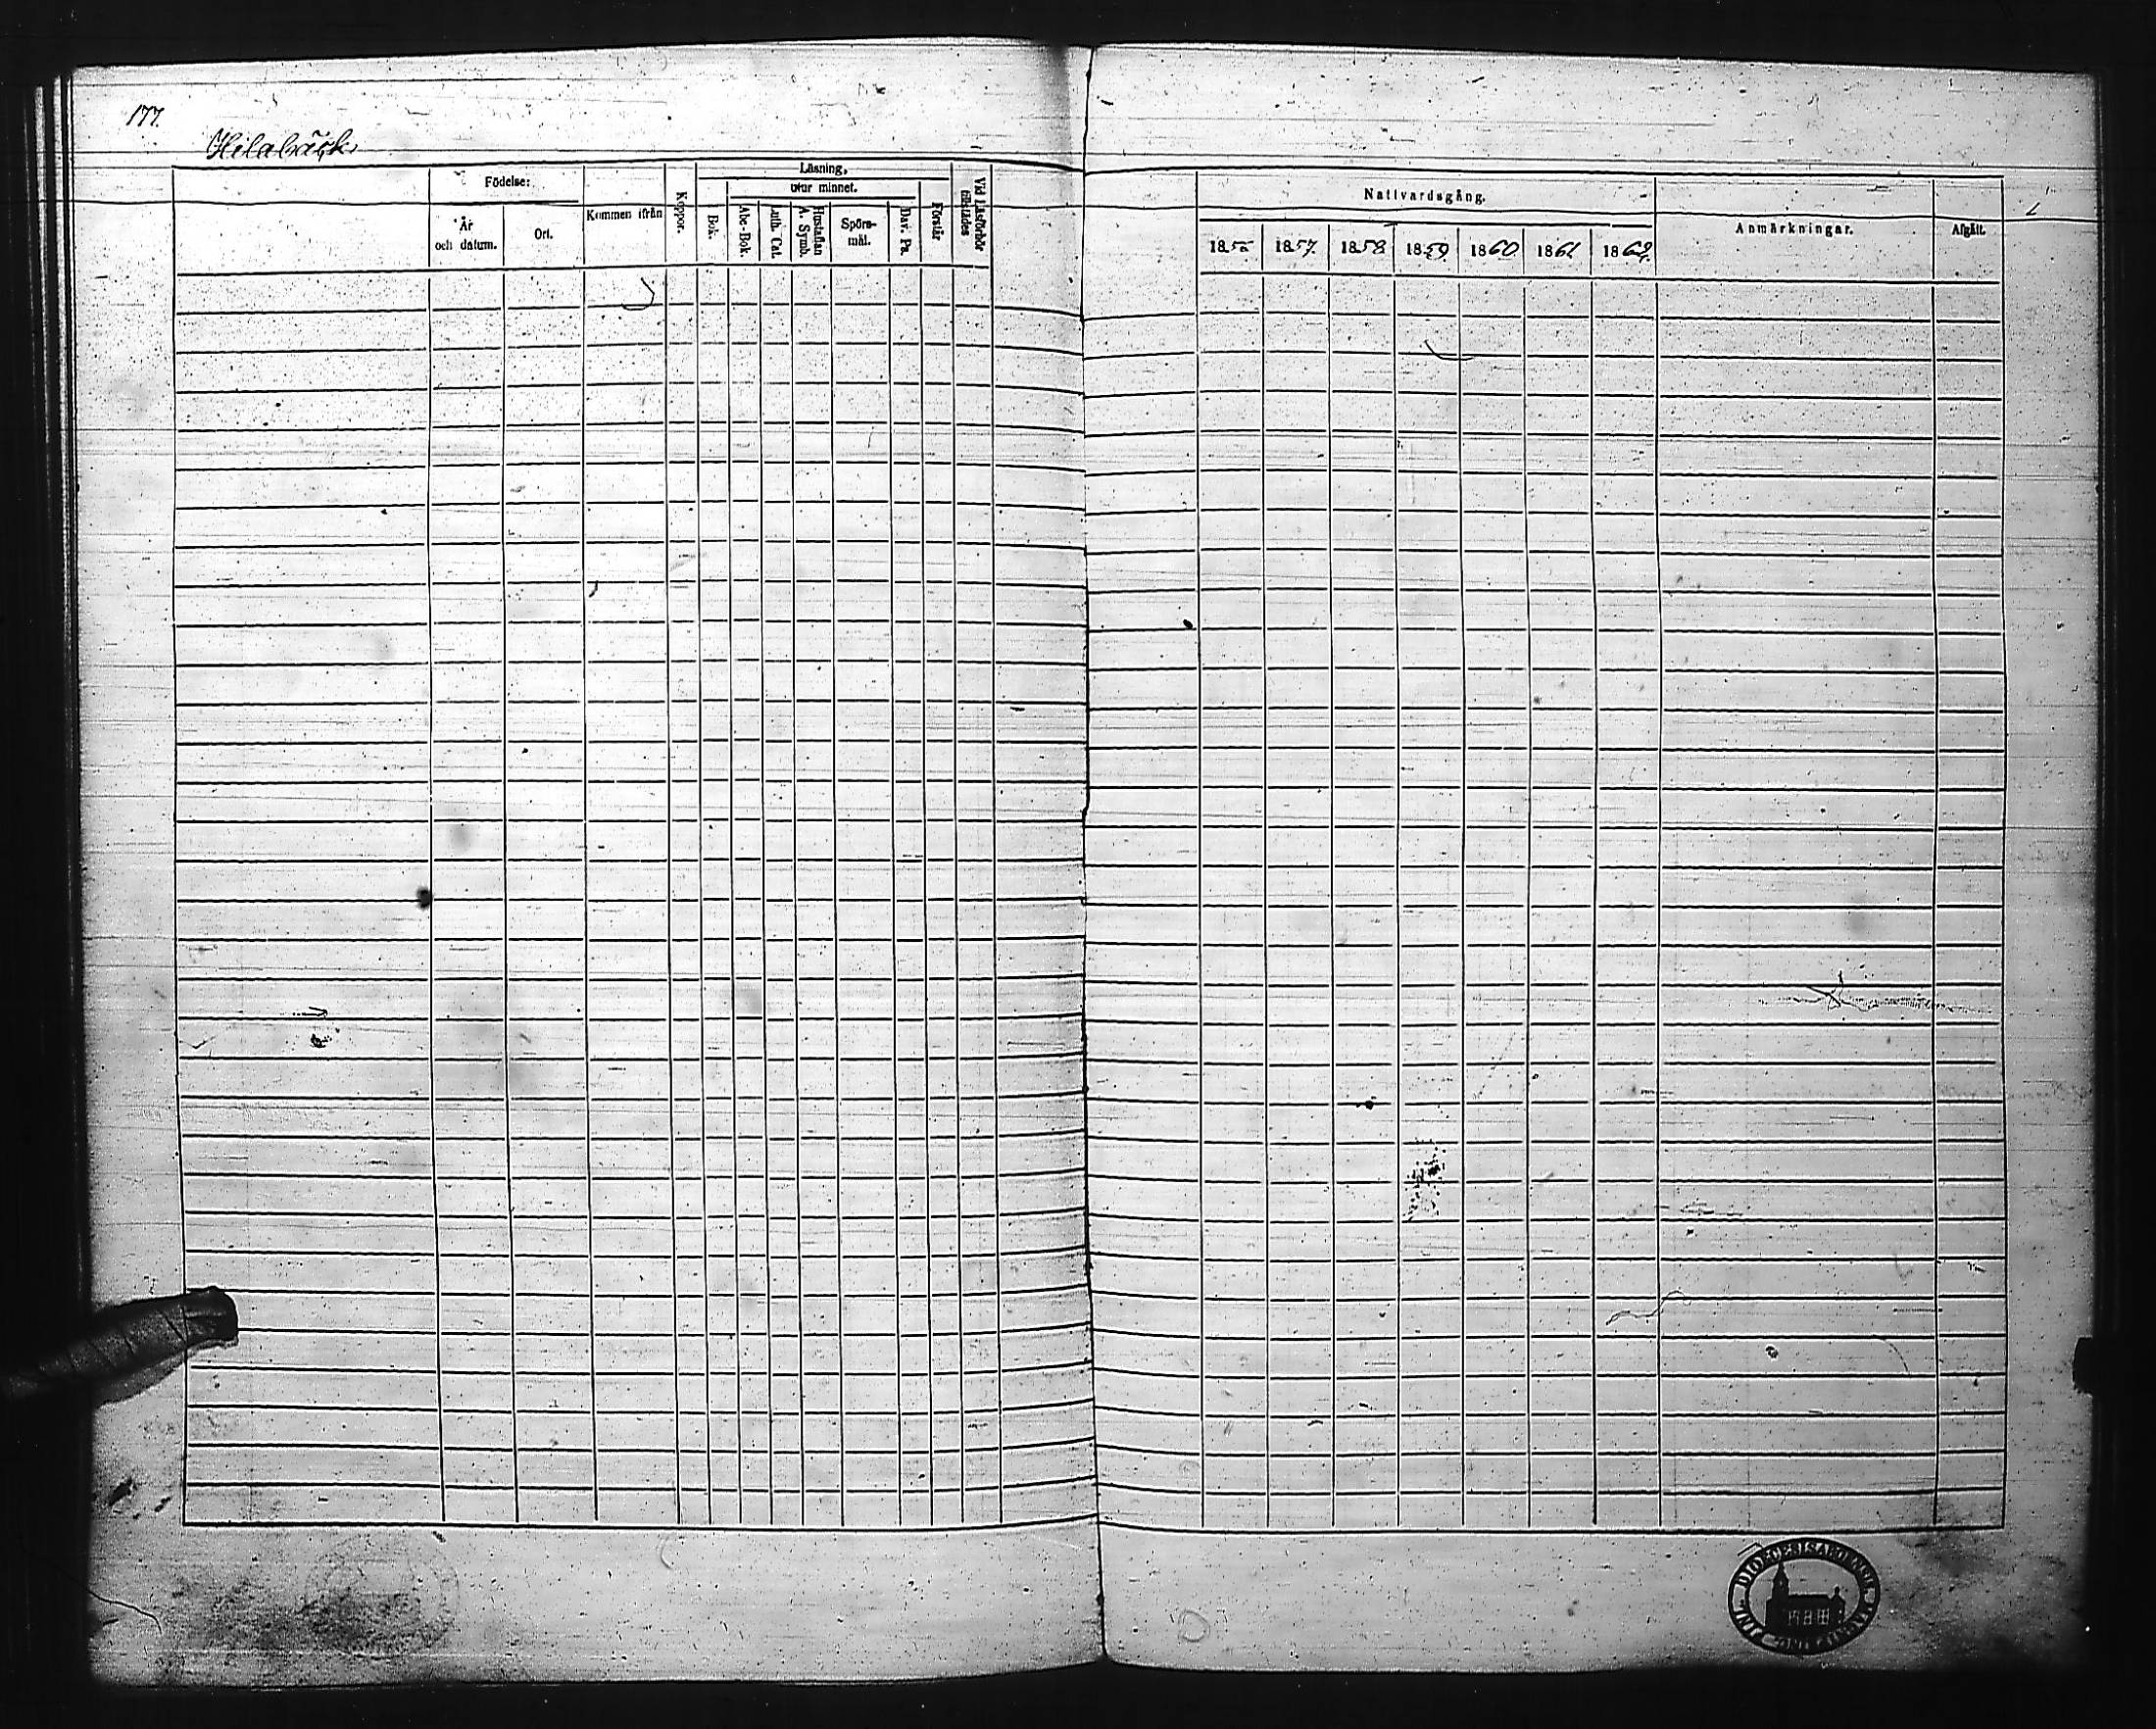 177.
Hilabäck
Födelse:
År
och datum.
Ort.
Kommen ifrån
Koppor.
Läsning,
utur minnet.
Bok.
Abc-Bok.
Luth. Cat.
Hustaflan
A. Symb.
Spörs-
mål.
Dav. Ps.
Förstår
Vid Läsförhör
tillstädes
Nattvardsgång.
1857. 1858 1859 1860 1861 1862.
Anmärkningar.
Afgått.